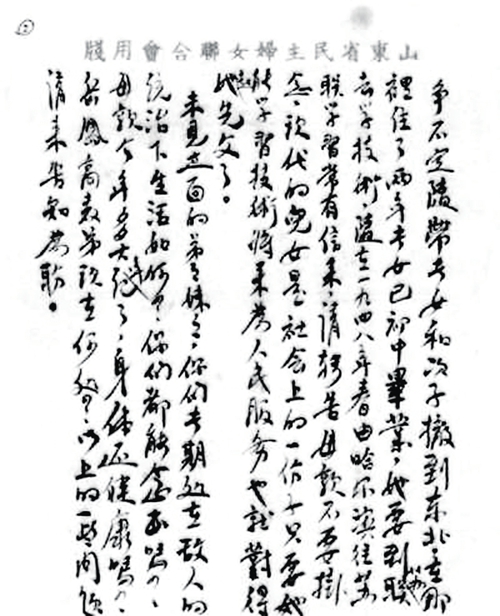 山東省民主婦女聯合會用牋
争不定隨帶長女和次子撤到东北在那
裡住了兩年長女已初中畢業，她要到聯
去学技術，隨在一九四八年春由哈尔濱往苏
联学習常有信来，請轉告母親不要掛
念，現代的兒女是社会上的一份子只要她
能学習技術將来為人民服务也就對得
她先父了。
未見过面的弟弟妹妹，你們長期处在敌人的
統治下生活的好，你們都能念书嗎？
母親今年了，身体还健康嗎？
鳳高弟現在何处？以上的一些问題
請来告知為盼。